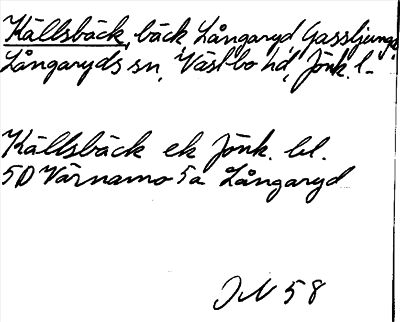 Källsbäck, bäck, Långaryd Gassljunga
Långaryds sn, Västbo hd, Jönk. l-
Källsbäck ek Jönk. bl.
5D Värnamo 5a Långaryd
JN 58